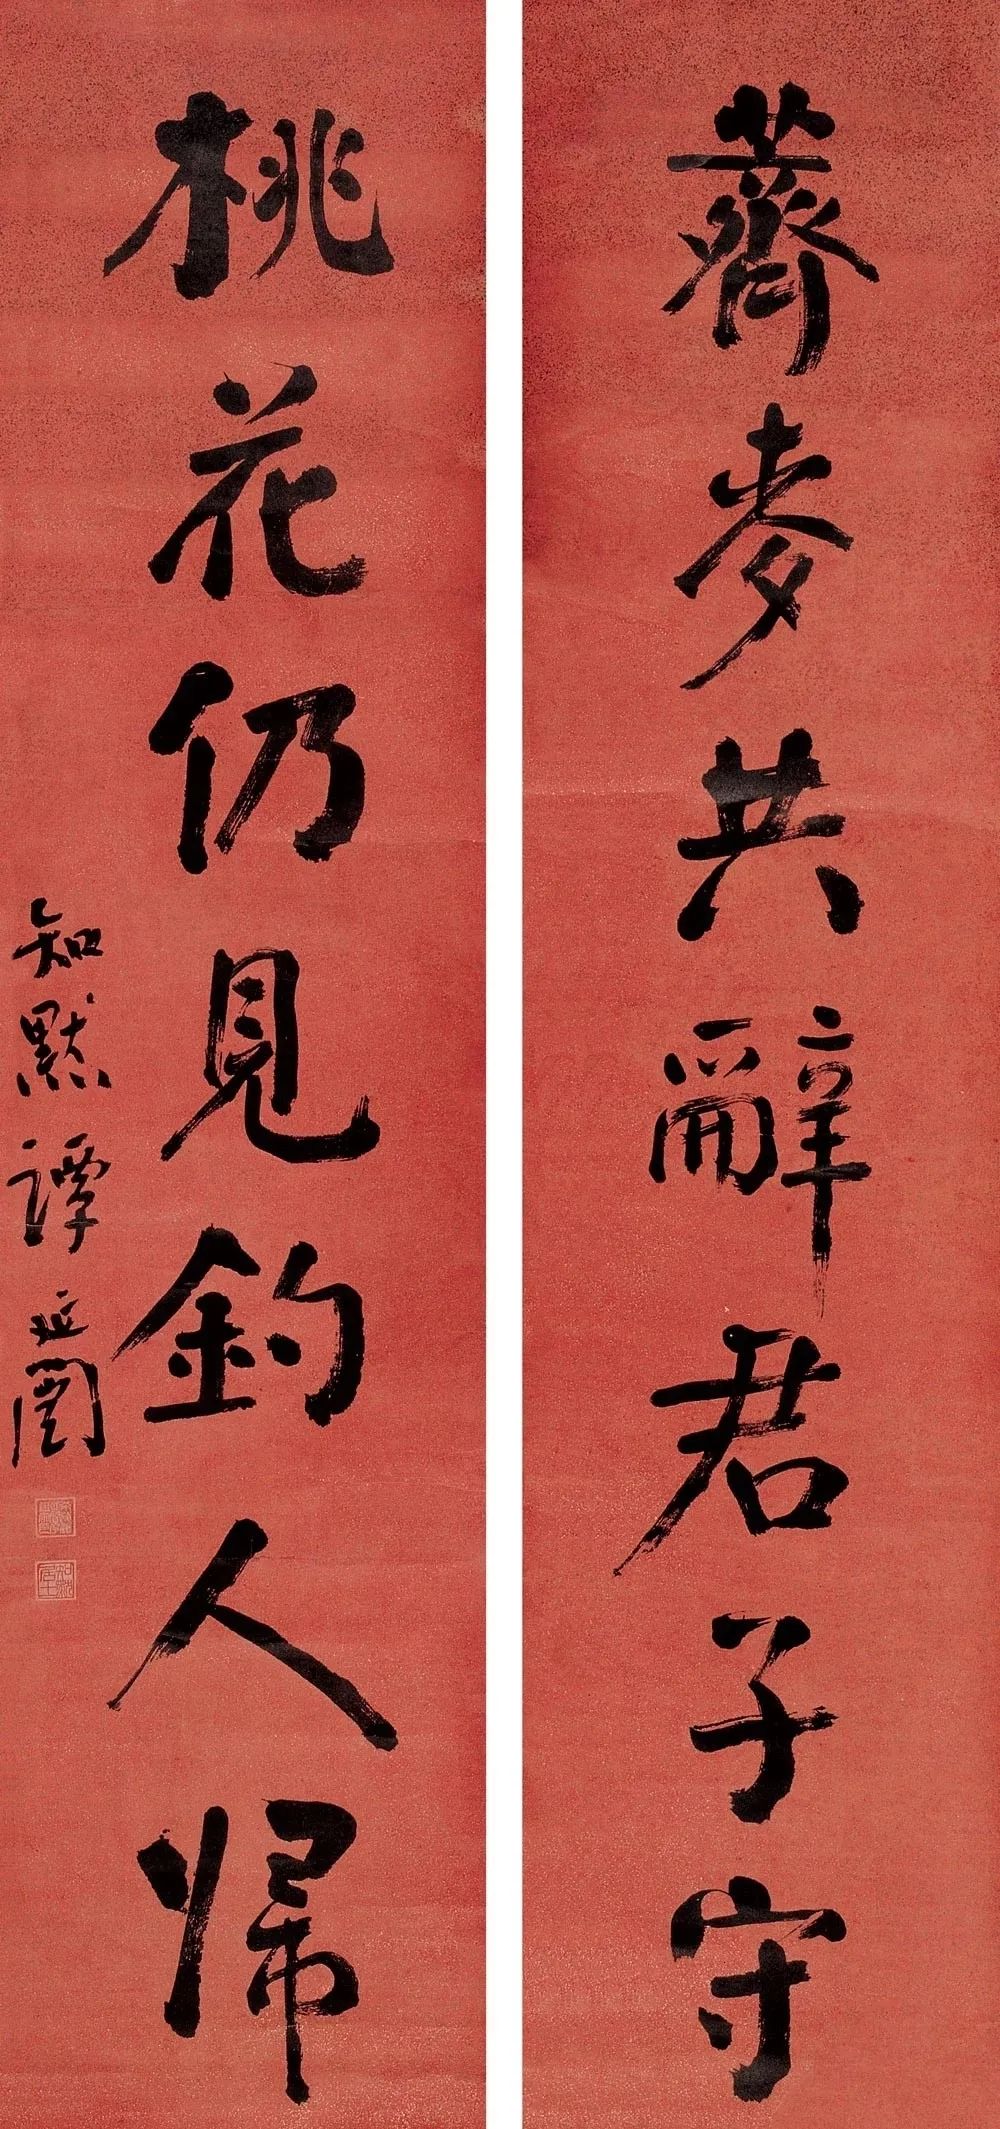 薺麥共辭君子守
桃花仍見釣人歸
知默譚延闓